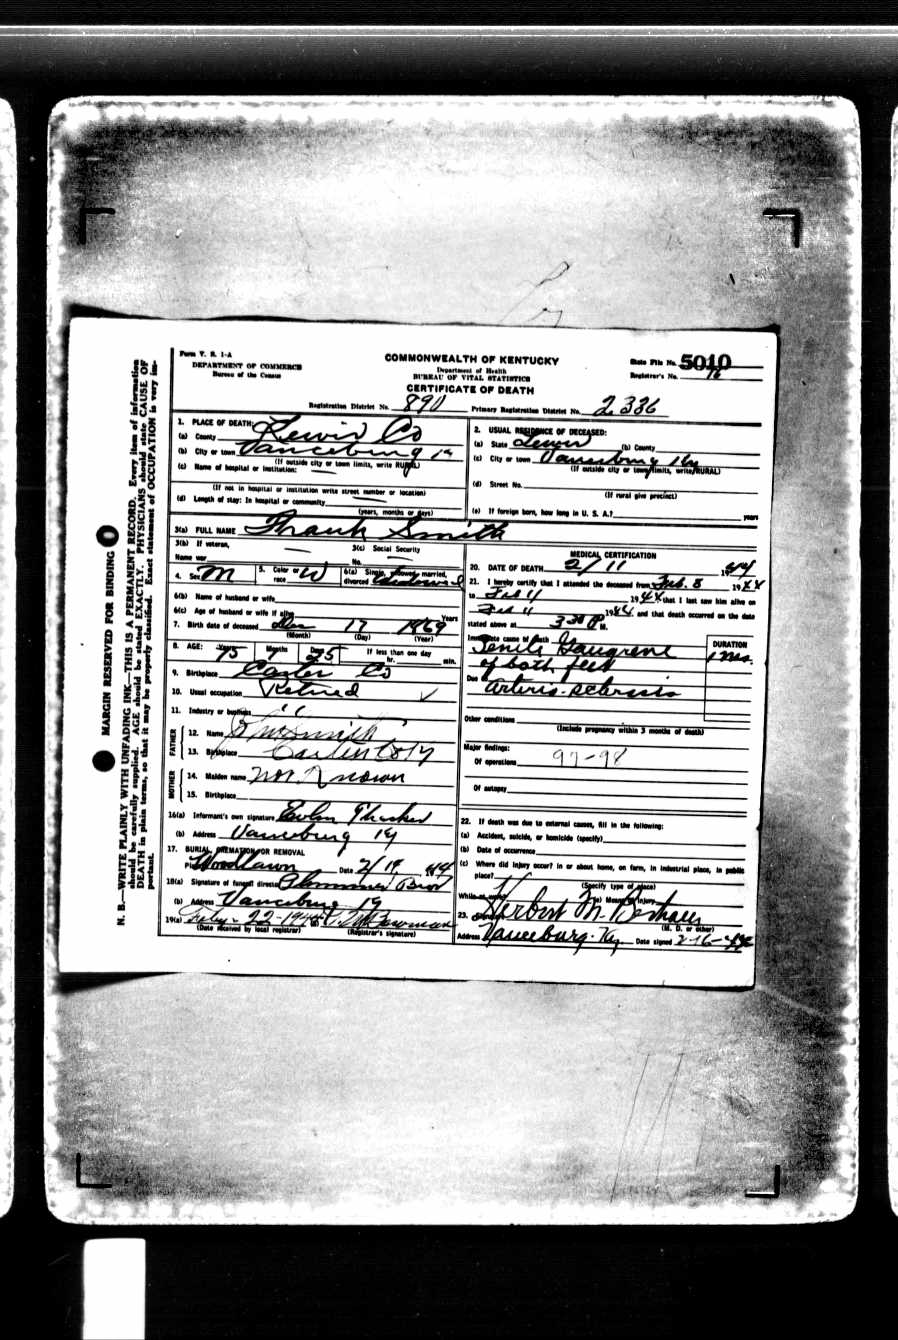 N. B.—WRITE PLAINLY WITH UNFADING INK—THIS IS A PERMANENT RECORD. Every item of information
should be carefully supplied. AGE should be stated EXACTLY. PHYSICIANS should state CAUSE OF
DEATH in plain terms, so that it may be properly classified. Exact statement of OCCUPATION is very im-
portant.
MARGIN RESERVED FOR BINDING
Form V. S. 1-A
DEPARTMENT OF COMMERCE
Bureau of the Census
COMMONWEALTH OF KENTUCKY
Department of Health
BUREAU OF VITAL STATISTICS
CERTIFICATE OF DEATH
State File No. 5010
Registrar's No. 16
Registration District No. 890
Primary Registration District No. 2336
1. PLACE OF DEATH:
(a) County Lewis Co
(b) City or town Vanceburg Ky
(If outside city or town limits, write RURAL)
(c) Name of hospital or institution:
(If not in hospital or institution write street number or location)
(d) Length of stay: In hospital or community
(years, months or days)
2. USUAL RESIDENCE OF DECEASED:
(a) State Lewis (b) County
(c) City or town Vanceburg Ky
(If outside city or town limits, write RURAL)
(d) Street No.
(If rural give precinct)
(e) If foreign born, how long in U. S. A.? years
3(a) FULL NAME Frank Smith
3(b) If veteran,
Name war
3(c) Social Security
No.
4. Sex M
5. Color or race W
6(a) Single, widowed, married, divorced Widowed
6(b) Name of husband or wife
6(c) Age of husband or wife if alive Years
7. Birth date of deceased Dec 17 1869
(Month) (Day) (Year)
8. AGE: Years 75 Months 1 Days 25 If less than one day
hr. min.
9. Birthplace Carter Co
10. Usual occupation Retired
11. Industry or business "
FATHER
12. Name Smith
13. Birthplace Carter Co Ky
MOTHER
14. Maiden name Not Known
15. Birthplace
16(a) Informant's own signature
(b) Address Vanceburg Ky
17. BURIAL, CREMATION OR REMOVAL
Woodlawn Date 2/14 1944
18(a) Signature of funeral director Plummer Bros
(b) Address Vanceburg Ky
19(a) Feby. 22-1944 (b) Bowman
(Date received by local registrar) (Registrar's signature)
MEDICAL CERTIFICATION
20. DATE OF DEATH 2/11 1944
21. I hereby certify that I attended the deceased from Feb. 8 1944
to Feb 11 1944 that I last saw him alive on
Feb 11 1944 and that death occurred on the date
stated above at 3 30 P M.
Immediate cause of death Senile Gangrene
of both feet
DURATION
1 mo.
Due to Arterio-sclerosis
Other conditions
(Include pregnancy within 3 months of death)
Major findings:
Of operations 97-98
Of autopsy
22. If death was due to external causes, fill in the following:
(a) Accident, suicide, or homicide (specify)
(b) Date of occurrence
(c) Where did injury occur? in or about home, on farm, in industrial place, in public
place?
(Specify type of place)
While at work (e) Means of injury
23. Signature Herbert M. Bertram
(M. D. or other)
Address Vanceburg. Ky. Date signed 2-16-44